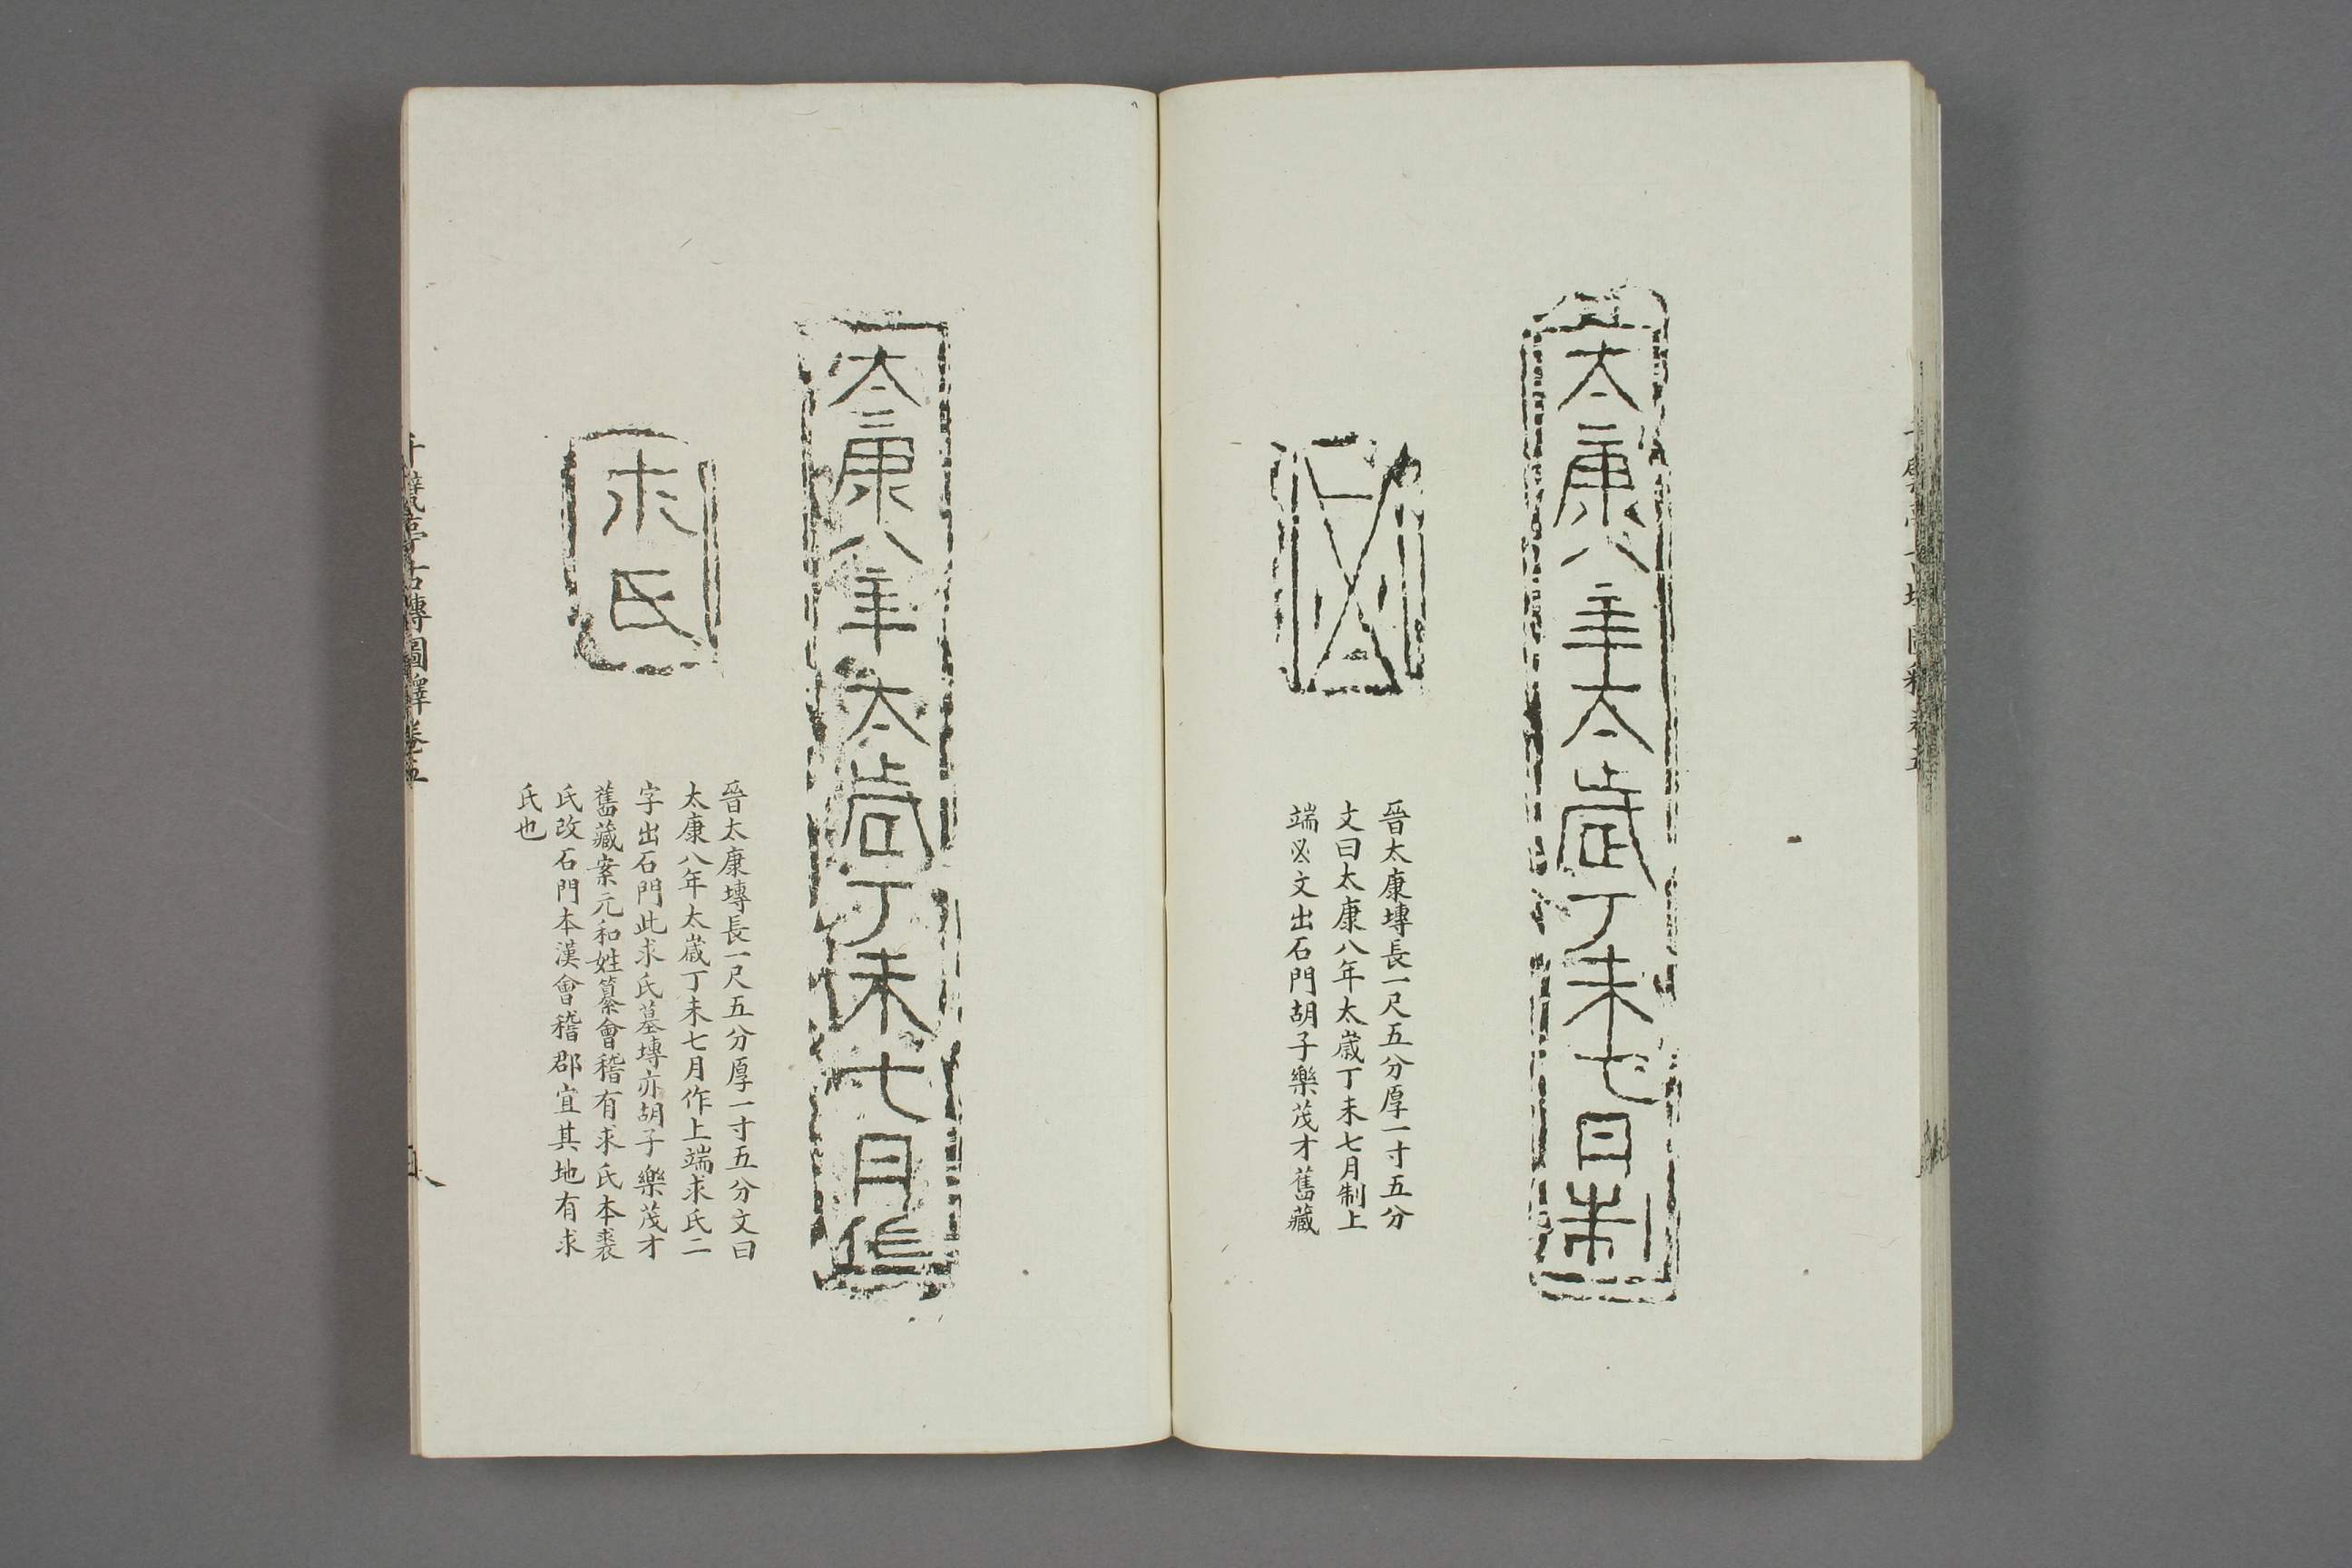 太康八年太歲丁未七月制
晉太康塼長一尺五分厚一寸五分
文曰太康八年太歲丁未七月制上
端㐅文出石門胡子樂茂才舊藏
太康八年太歲丁未七月作
求氏
晉太康塼長一尺五分厚一寸五分文曰
太康八年太歲丁未七月作上端求氏二
字出石門此求氏墓塼亦胡子樂茂才
舊藏案元和姓纂會稽有求氏本裘
氏改石門本漢會稽郡宜其地有求
氏也
千甓亭古塼圖釋卷五